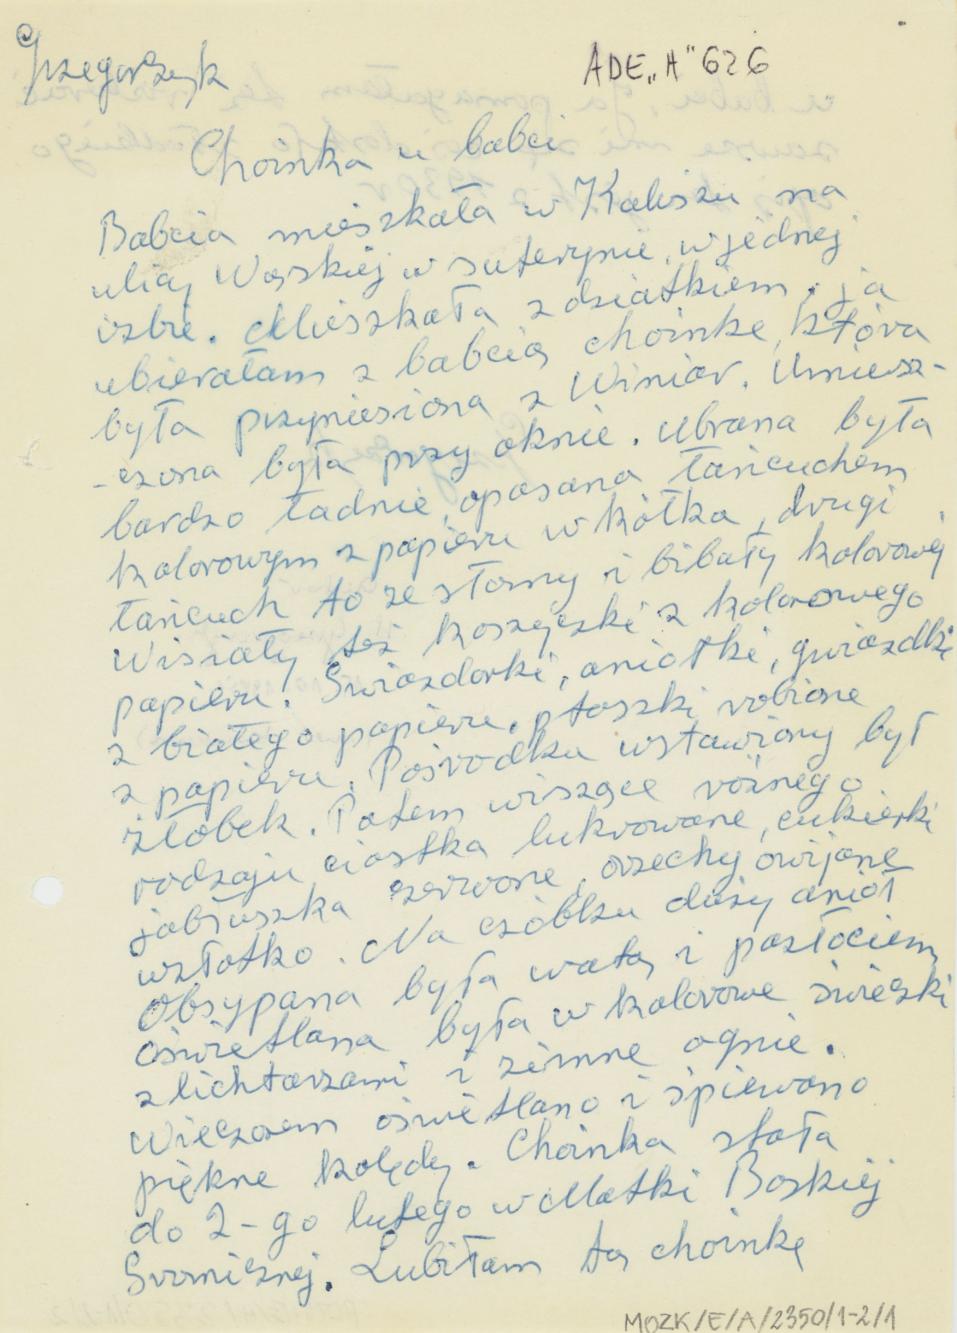 Grzegorzyk
ADE „A" 626
Choinka u babci
Babcia mieszkała w Kaliszu na
ulicy Wąskiej w suterynie, w jednej
izbie. Mieszkała z dziatkiem. ja
ubierałam z babcią choinkę, która
była przyniesiona z Winiar. Umiesz-
-czona była przy oknie. Ubrana była
bardzo ładnie, opasana łańcuchem
kolorowym z papieru w kółka, drugi
łańcuch to ze słomy i bibuły kolorowej
Wisiały też koszyczki z kolorowego
papieru. Gwiazdorki, aniołki, gwiazdki
z białego papieru. ptaszki robione
z papieru. Pośrodku wstawiony był
żłobek. Potem wiszące różnego
rodzaju ciastka lukrowane, cukierki
jabłuszka czerwone, orzechy owijane
w złotko. Na czóbku duży anioł
Obsypana była watą i pozłociem,
oświetlana była w kolorowe świeczki
z lichtarzami i zimne ognie.
Wieczorem oświetlano i śpiewano
piękne kolędy. Choinka stała
do 2-go lutego w Matki Boskiej
Gromicznej. Lubiłam tą choinkę
MOZK/E/A/2350/1-2/1